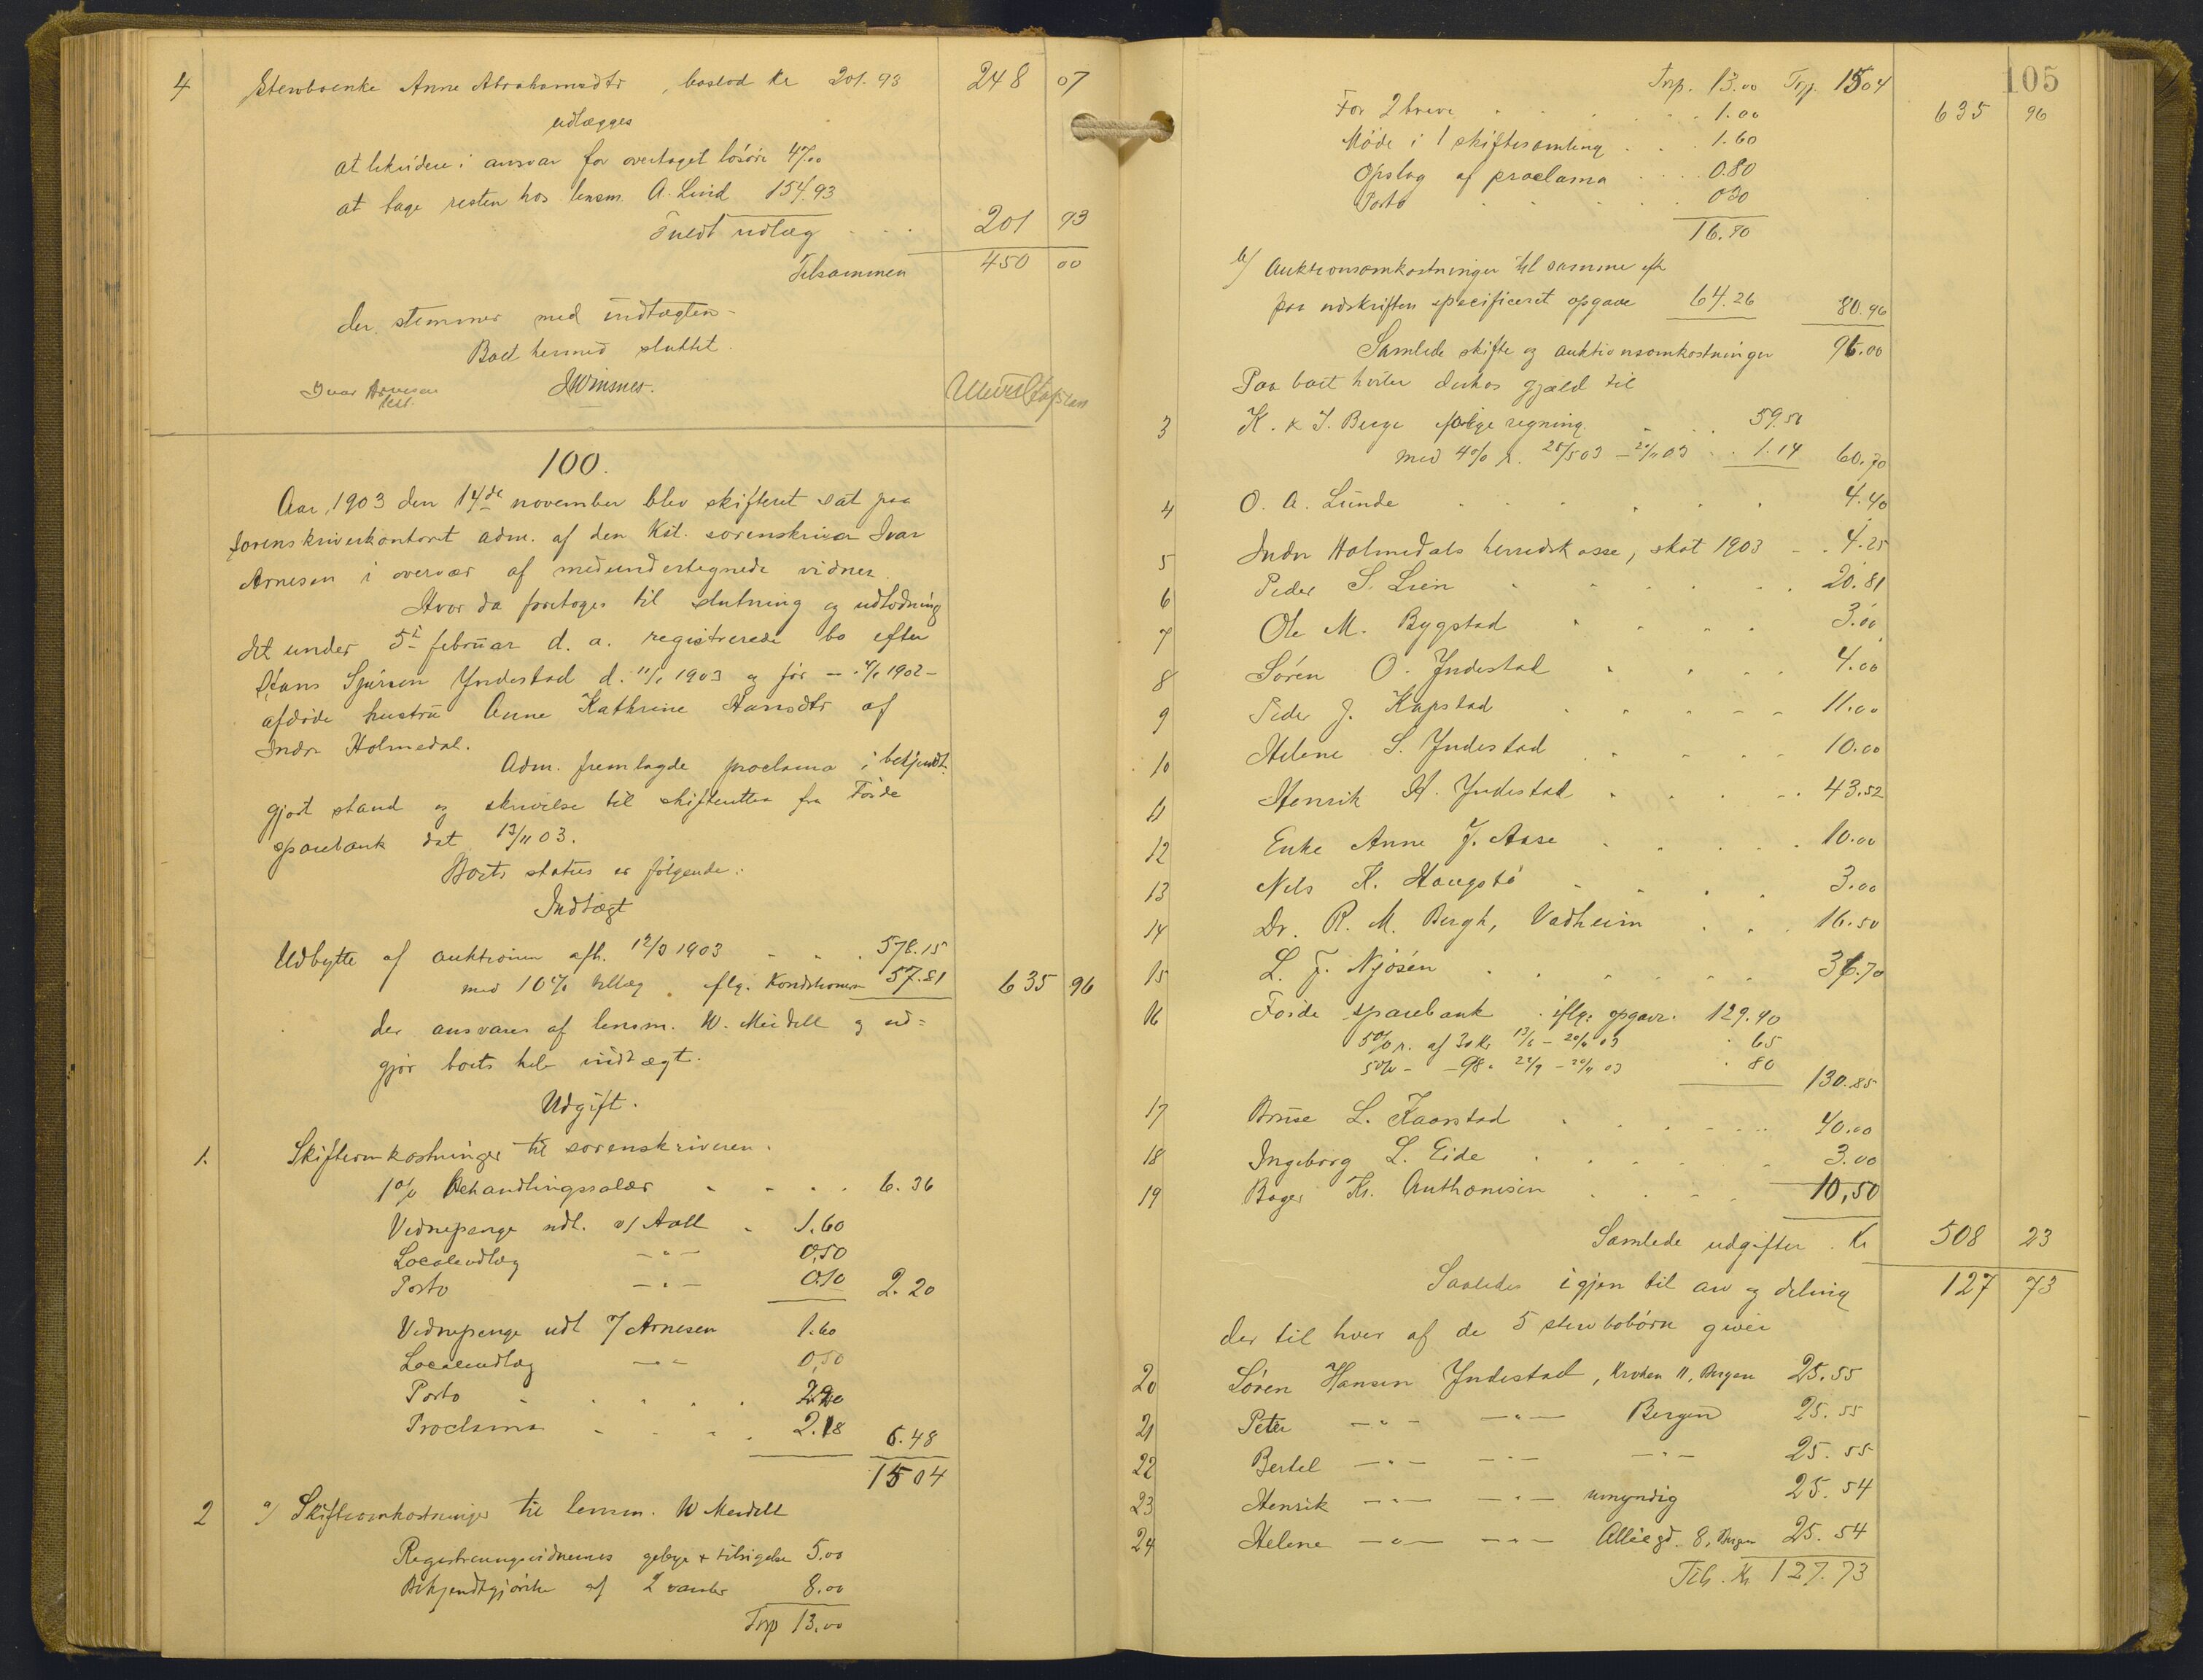 4 Stervboenke Anne Abrahamsdtr, boslod kr 201.93 248 07
udlægges
at likvidere i ansvar for overtaget løsøre 47.00
at tage resten hos lensm. A. Lind 154.93
Fuldt udlæg . . . 201 93
Tilsammen 450 00
der stemmer med indtægten -
Boet hermed sluttet.
Ivar Arnesen
kst.
100.
Aar 1903 den 14de november blev skifteret sat paa
sorenskriverkontoret adm. af den Kst. sorenskriver Ivar
Arnesen i overvær af medundertegnede vidner.
Hvor da foretoges til slutning og udlodning
det under 5te februar d. a. registrerede bo efter
Hans Yndestad d. 11/1 1903 og før 1902 -
afdøde hustru Anne Kathrine Hansdtr af
Indre Holmedal.
Adm. fremlagde proclama i bekjendt-
gjort stand og skrivelse til skifteretten fra Førde
sparebank dat 13/11 03.
Boets status er følgende:
Indtægt
Udbytte af auktionen afh. 12/3 1903 . . . 578.15
med 10% tillæg iflg. Konditionerne 57.81 635 96
der ansvares af lensm. W. Meidell og ud=
gjør boets hele indtægt.
Udgift.
1. Skifteomkostninger til sorenskriveren.
1% Behandlingssalær . . . . 6.36
Vidnepenge udl. v/ Aall . 1.60
Localeudlæg - " - 0,50
Porto - " - 0.10 2.20
Vidnepenge udl v/ Arnesen 1.60
Localeudlæg - " - 0,50
Porto . . . . 2.20
Proclama . . . . 2.18 6.48
15 04
2 a/ Skifteomkostninger til lensm. W Meidell
Registreringsvidnernes gebyr + tilsigelse 5.00
Bekjendtgjørelse af 2 8.00
Trsp 13.00
105
Trsp. 13.00 Trsp. 15 04
For 2 breve . . . . 1.00 635 96
Møde i 1 skiftesamling . . . 1.60
Opslag af proclama . . . . 0.80
Porto . . . . 0 30
16.70
b/ Auktionsomkostninger til samme efter
paa udskriften specificeret opgave 64.26 80.96
Samlede skifte og auktionsomkostninger 96.00
Paa boet hviler derhos gjæld til
3 K. & J. Berge ifølge regning . . 59.56
med 4% r. 25/5 03 - 20/11 03 . . 1.14 60.70
4 O. A. Lunde . . . . . . 4.40
5 Indre Holmedals herredskasse, skat 1903 - . 4.25
6 Peder S. Lien . . . . . 20.81
7 Ole M. Bygstad . . . . 3.00
8 Søren O. Yndestad . . . . 4.00
9 Peder J. Kapstad . . . . . 11.00
10 Helene S. Yndestad . . . . 10.00
11 Henrik H. Yndestad . . . . 43.52
12 Enke Anne J. Aase . . . . . 10.00
13 Nels K. Haugstø . . . . 3.00
14 Dr. R. M. Bergh, Vadheim . . . 16.50
15 L. J. Njøsen . . . . . . 36.70
16 Førde sparebank iflg. opgave. 129.40
5% r. af 30 kr 13/6 - 20/11 03 . 65
5% - - 98 " 22/9 - 20/11 03 . 80 130.85
17 Bruse L. Kaarstad . . . . . . 40.00
18 Ingeborg L. Eide . . . . . 3.00
19 Bager Kr. Anthonisen . . . . 10,50
Samlede udgifter . Kr 508 23
Saaledes igjen til arv og deling 127 73
der til hver af de 5 stervbobørn giver
20 Søren Hansen Yndestad, Kroken 11, Bergen 25.55
21 Peter - " - - " - Bergen 25.55
22 Bertel - " - - " - - " - 25.55
23 Henrik - " - - " - umyndig 25.54
24 Helene - " - - " - Alleegd. 8, Bergen 25.54
Tils. Kr 127.73